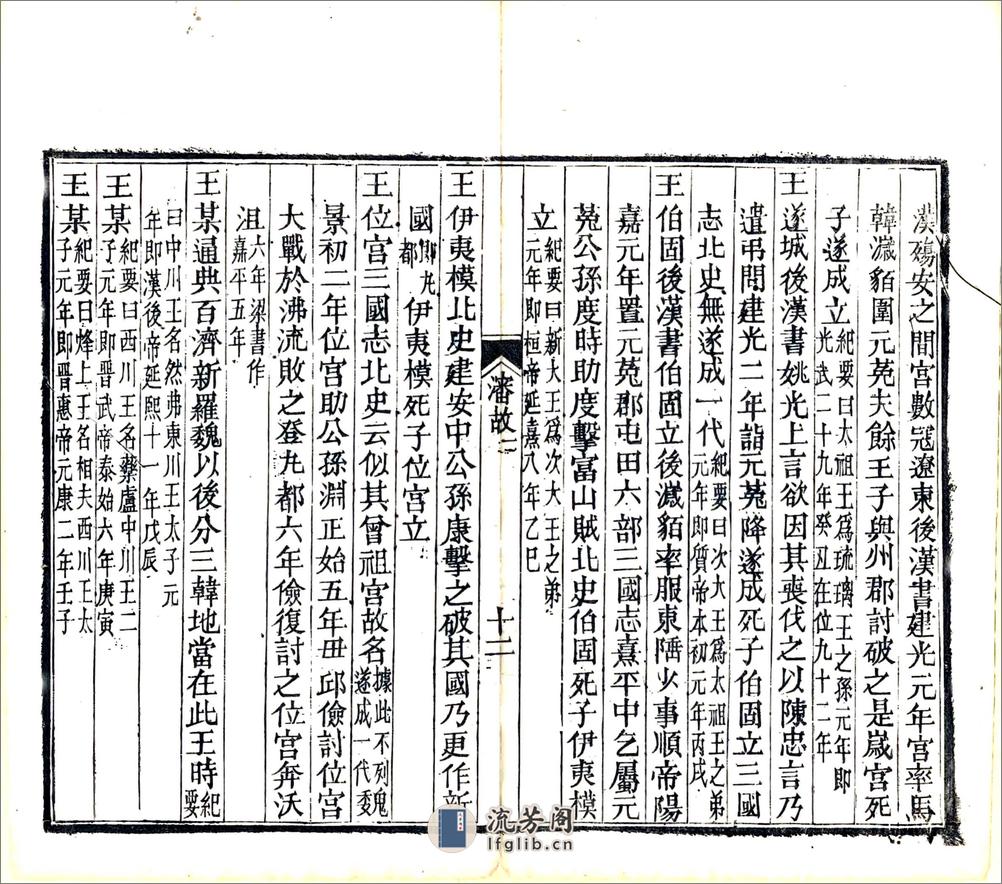 漢殤安之間宮數冦遼東後漢書建光元年宮率馬
韓濊貊圍元菟夫餘王子與州郡討破之是嵗宮死
子遂成立紀要曰太祖王爲琉璃王之孫元年即
光武二十九年癸丑在位九十二年
王遂城後漢書姚光上言欲因其喪伐之以陳忠言乃
遣弔問建光二年詣元菟降遂成死子伯固立三國
志北史無遂成一代紀要曰次大王爲太祖王之弟
元年即質帝本初元年丙戌
王伯固後漢書伯固立後濊貊率服東陲少事順帝陽
嘉元年置元菟郡屯田六部三國志熹平中乞屬元
菟公孫度時助度擊富山賊北史伯固死子伊夷模
立紀要曰新大王爲次大王之弟
元年即桓帝延熹八年乙巳
瀋故
十二
王伊夷模北史建安中公孫康擊之破其國乃更作新
國即九
都伊夷模死子位宮立
王位宮三國志北史云似其曾祖宮故名據此不列魏
遂成一代
景初二年位宮助公孫淵正始五年毌邱儉討位宮
大戰於沸流敗之登九都六年儉復討之位宮奔沃
沮六年梁書作
嘉平五年
王某通典百濟新羅魏以後分三韓地當在此王時紀要
曰中川王名然弗東川王太子元
年即漢後帝延熙十一年戊辰
王某紀要曰西川王名藥盧中川王二
子元年即晉武帝泰始六年庚寅
王某紀要曰烽上王名相夫西川王太
子元年即晉惠帝元康二年壬子
流芳阁
lfglib.cn